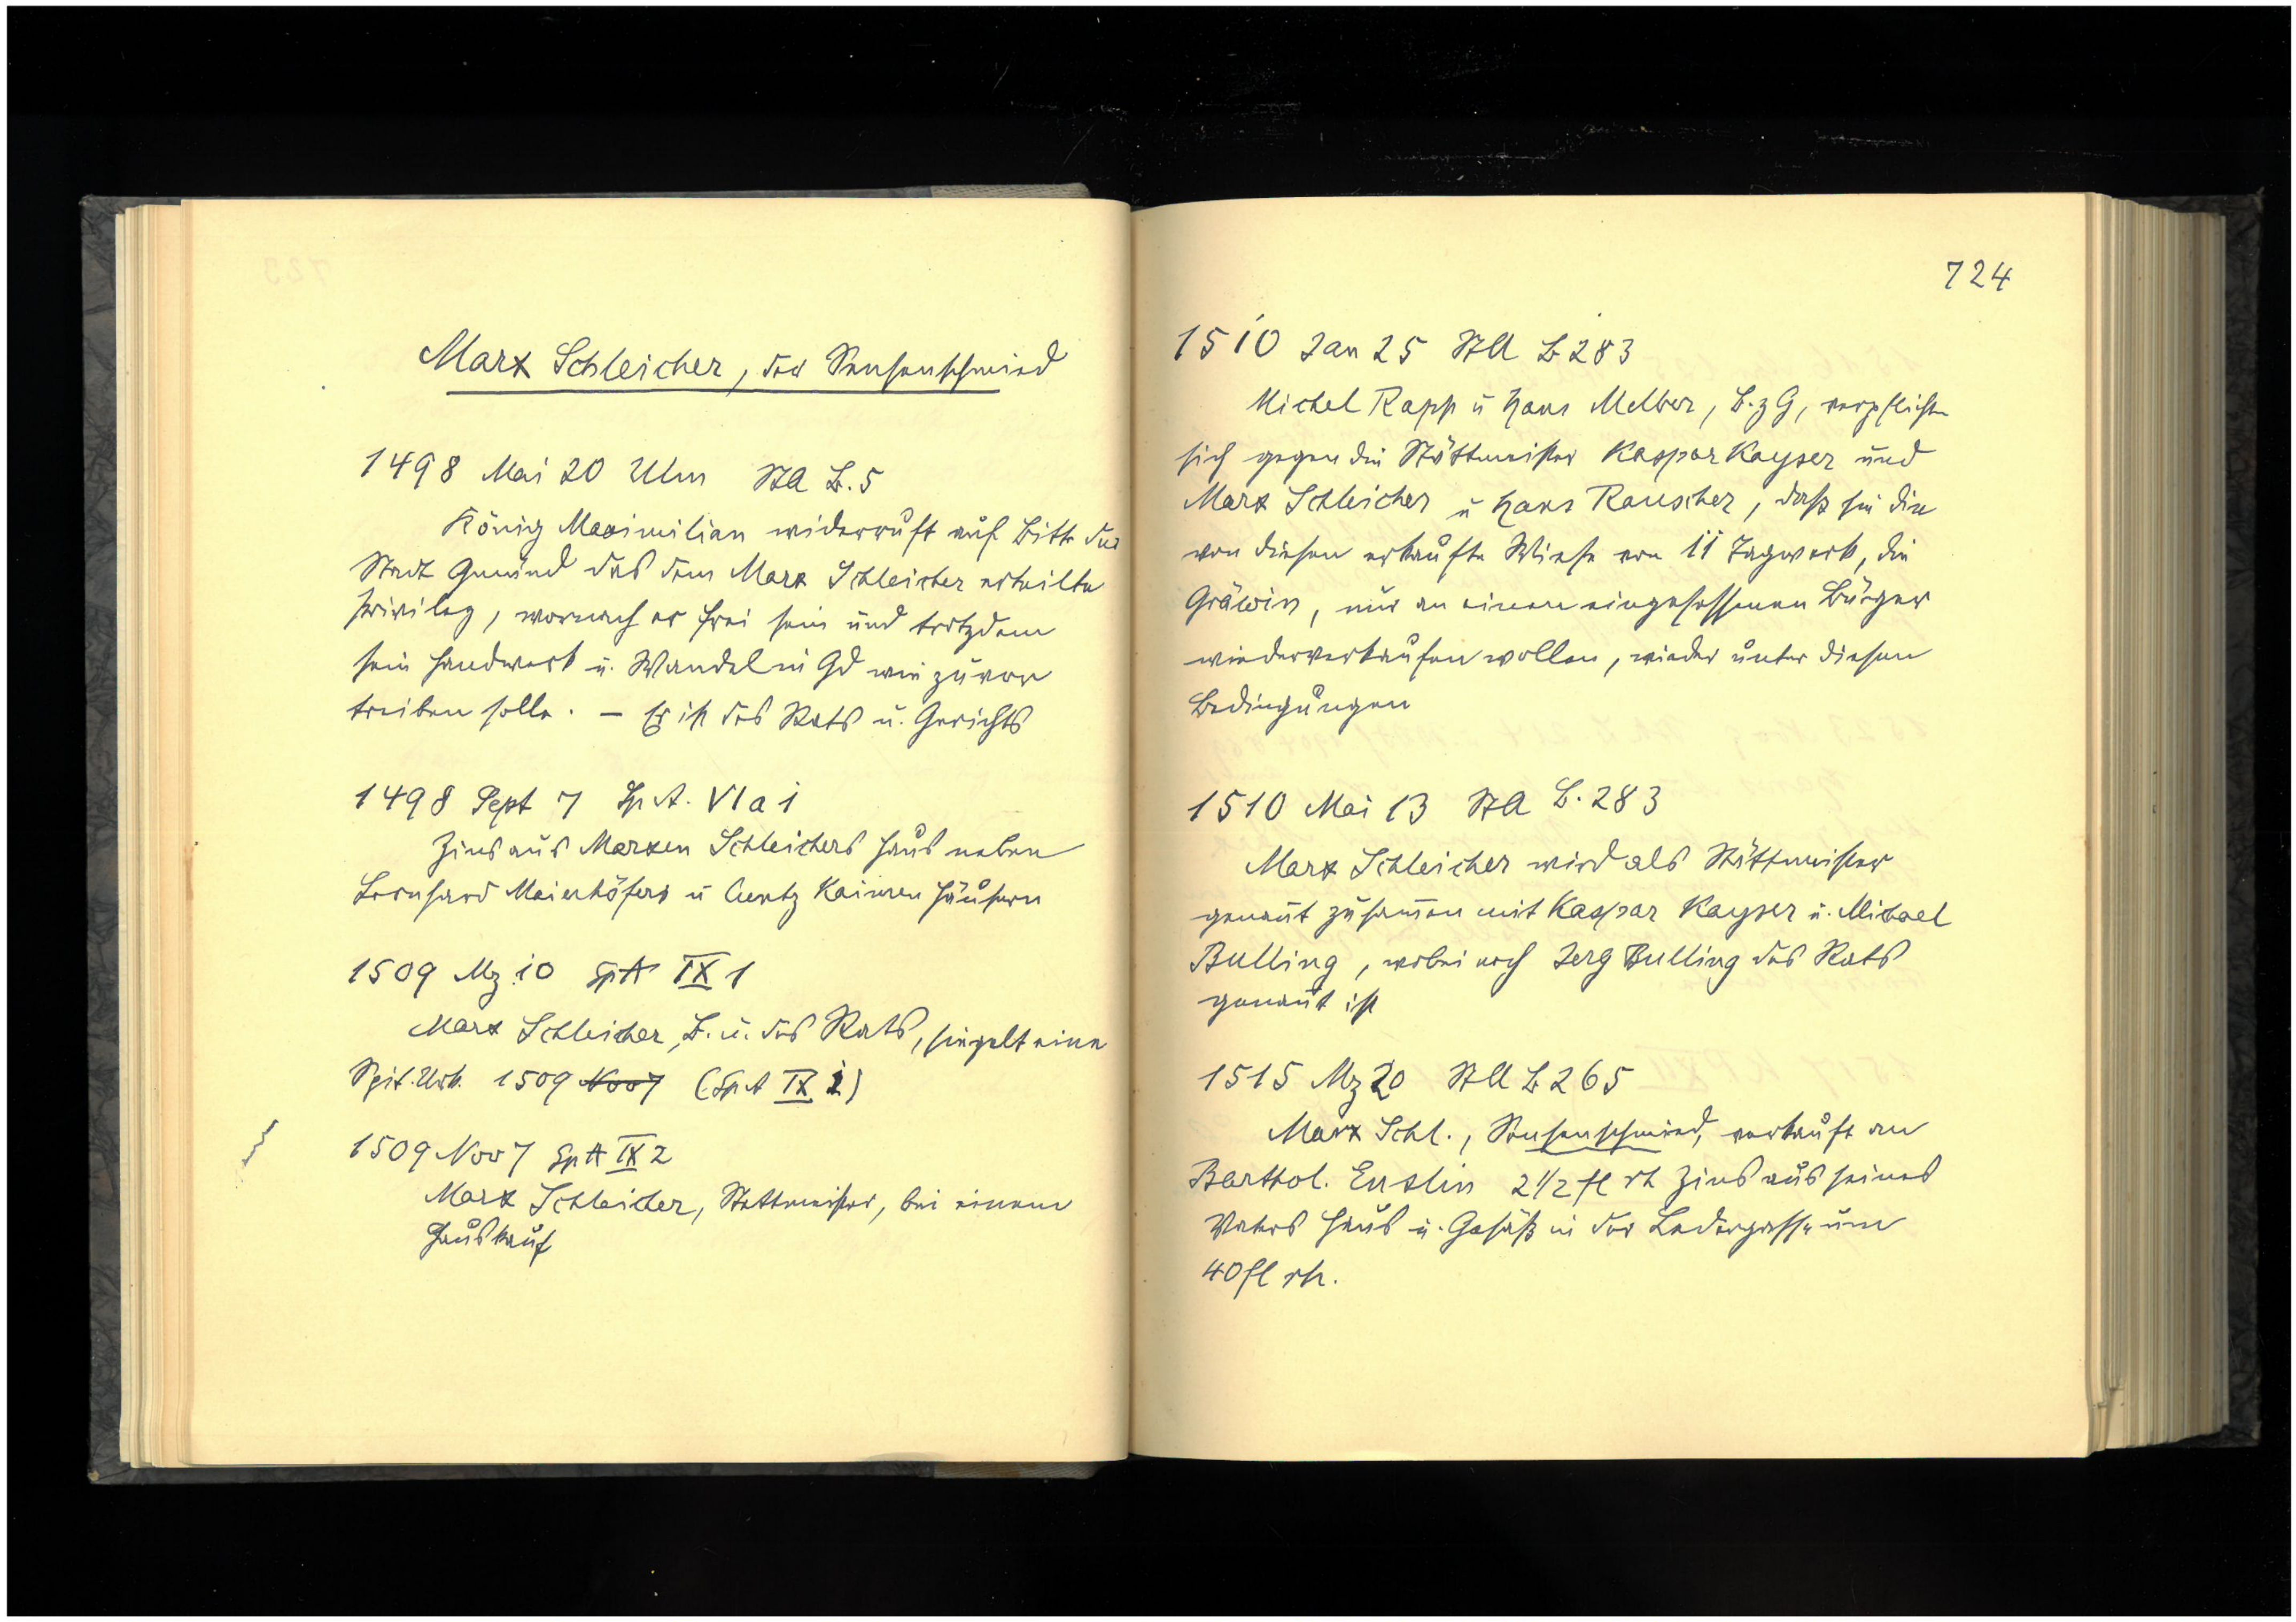 Marx Schleicher, der Sensenschmied
1498 Mai 20 Ulm StA B.5
König Maximilian widerruft auf Bitte der
Stadt Gmünd das dem Marx Schleicher erteilte
Privileg, wornach er frei sein und trotzdem
sein Handwerk u. Wandel in Gd wie zuvor
treiben solle. – Er ist des Rats u. Gerichts
1498 Sept 7 Sp A. VI a 1
Zins aus Marxen Schleichers Haus neben
Bernhard Maierhöfers u Cuntz Kaimen Häusern
1509 Mz 10 SpA IX 1
Marx Schleicher, B. u. des Rats, siegelt eine
Spit. Urk. 1509 Nov 7 (SpA IX 2)
1509 Nov 7 SpA IX 2
Marx Schleicher, Stettmeister, bei einem
Hauskauf
724
1510 Jan 25 StA B 283
Michel Rapp u Hans Melber, B. z G, verpflichten
sich gegen die Stättmeister Kaspar Kayser und
Marx Schleicher u Hans Rauscher, daß sie die
von diesen erkaufte Wiese von 11 Tagwerk, die
Gräwin, nur an einen eingesessenen Bürger
wiederverkaufen wollen, wieder unter diesen
Bedingungen
1510 Mai 13 StA B. 283
Marx Schleicher wird als Stättmeister
genannt zusammen mit Kaspar Kayser u. Michael
Bulling, wobei noch Jerg Bulling des Rats
genannt ist
1515 Mz 20 StA B 265
Marx Schl., Sensenschmied, verkauft an
Barthol. Enslin 2 1/2 fl rh Zins aus seines
Vaters Haus u. Gesäß in der Ledergasse um
40 fl rh.